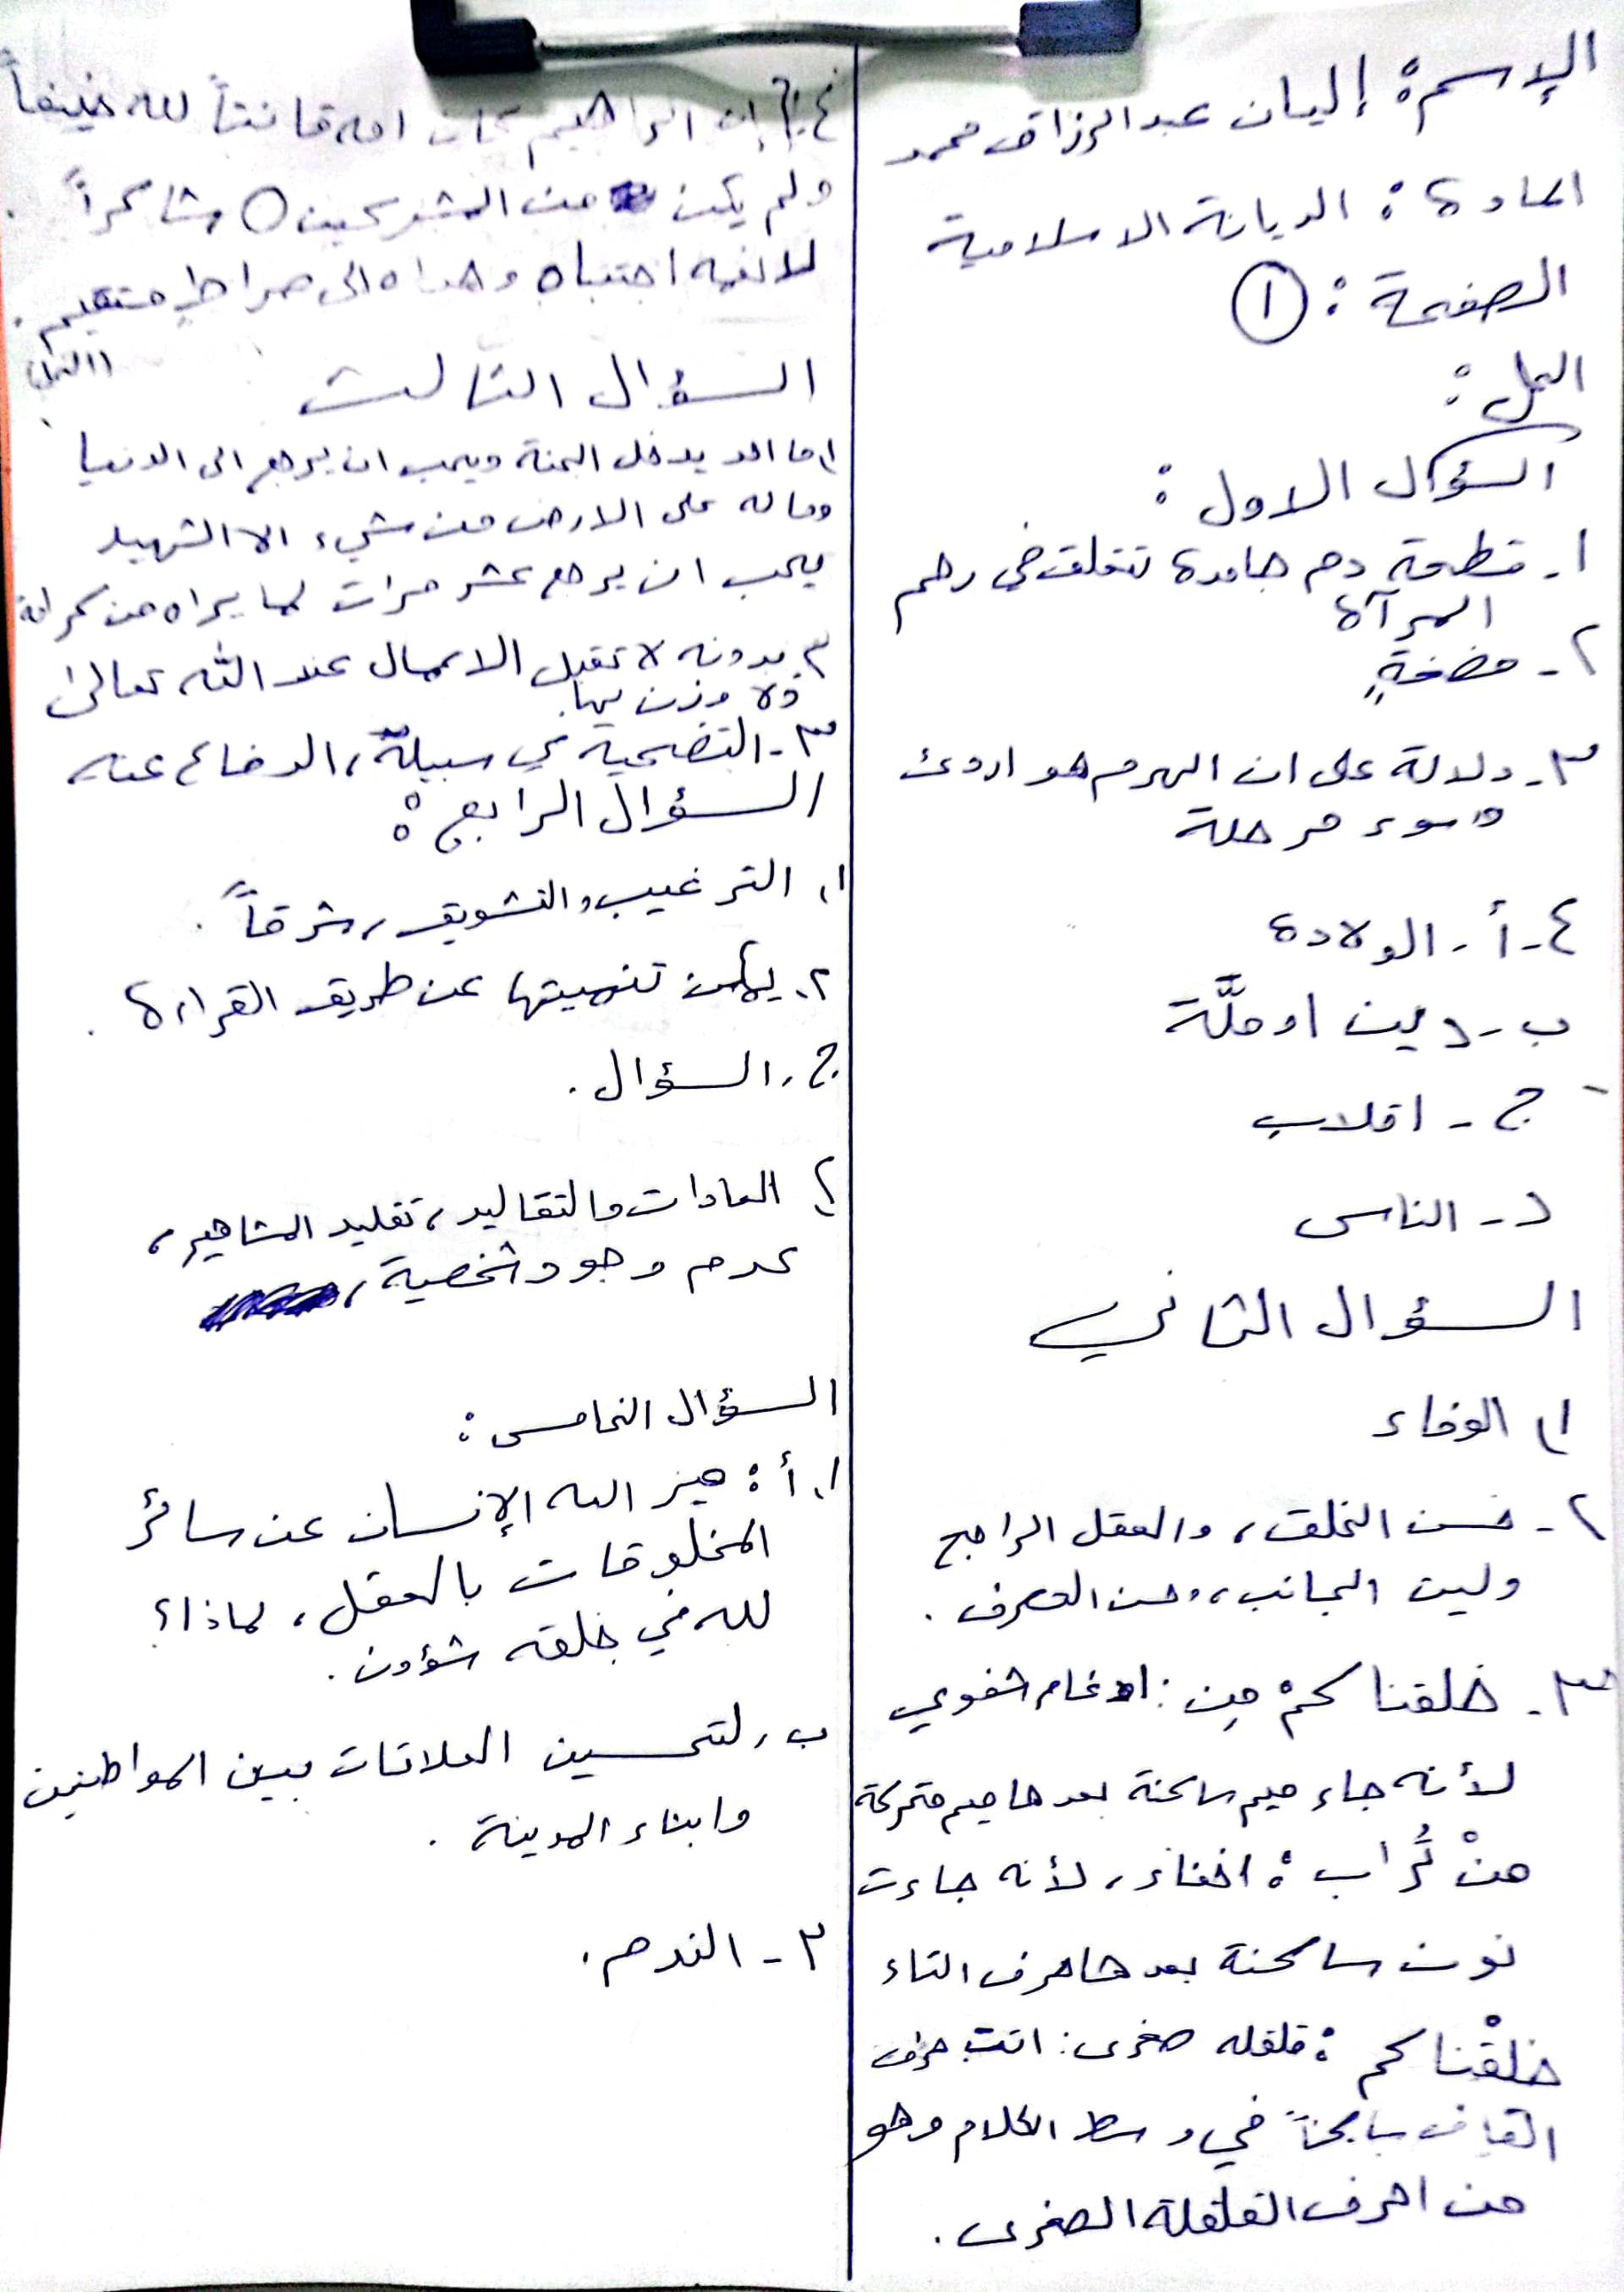 الإسم: إليان عبد الرزاق محمد
المادة: الديانة الاسلامية
الصفحة: ١
الحل:
السؤال الاول:
١- قطعة دم جامدة تتخلق في رحم
المرآة
٢- مضغةٍ
٣- دلالة على ان الهرم هو اردئ
وسوء مرحلة
٤- أ- الولادة
ب- دين او ملَّة
ج- اقلاب
د- الناس
السؤال الثاني
١) الوفاء
٢- حسن الخلق، والعقل الراجح
ولين الجانب، وحسن التصرف.
٣- خلقناكمْ مِن: ادغام شفوي
لأنه جاء ميم ساكنة بعدها ميم متحركة
منْ تُراب: اخفاء، لأنه جاءت
نون ساكنة بعدها حرف التاء
خلقْناكم: قلقله صغرى: اتت حرف
القاف ساكناً في وسط الكلام وهو
من احرف القلقلة الصغرى.
٤) إن ابراهيم كان امه قانتاً لله حنيفاً
ولم يكن من المشركين ○ شاكراً
لانعمه اجتباه وهداه الى صراطٍ مستقيم.
(النحل)
السؤال الثالث
١) ما احد يدخل الجنة ويحب ان يرجع الى الدنيا
وماله على الارض من شيء الا الشهيد
يحب ان يرجع عشر مرات لما يراه من كرامة
٢) بدونه لا تقبل الاعمال عند الله تعالى
ولا وزن لها.
٣- التضحية في سبيله، الدفاع عنه
السؤال الرابع:
١) الترغيب والتشويق، شرقاً.
٢. يمكن تنميتها عن طريق القراءة.
ج. السؤال.
٢) العادات والتقاليد، تقليد المشاهير،
عدم وجود شخصية،
السؤال الخامس:
١. أ: ميز الله الإنسان عن سائر
المخلوقات بالعقل، لماذا؟
لله في خلقه شؤون.
ب. لتحسين العلاقات بين المواطنين
وابناء المدينة.
٢- الندم.